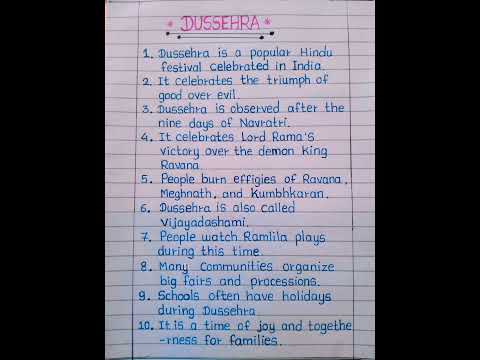 * DUSSEHRA *
1. Dussehra is a popular Hindu
festival celebrated in India.
2. It celebrates the triumph of
good over evil.
3. Dussehra is observed after the
nine days of Navratri.
4. It celebrates Lord Rama's
victory over the demon king
Ravana
5. People burn effigies of Ravana,
Meghnath, and Kumbhkaran.
6. Dussehra is also called
Vijayadashami.
7. People watch Ramlila plays
during this time.
8. Many Communities organize
big fairs and processions.
9. Schools often have holidays
during Dussehra.
10. It is a time of joy and togethe
-rness for families.